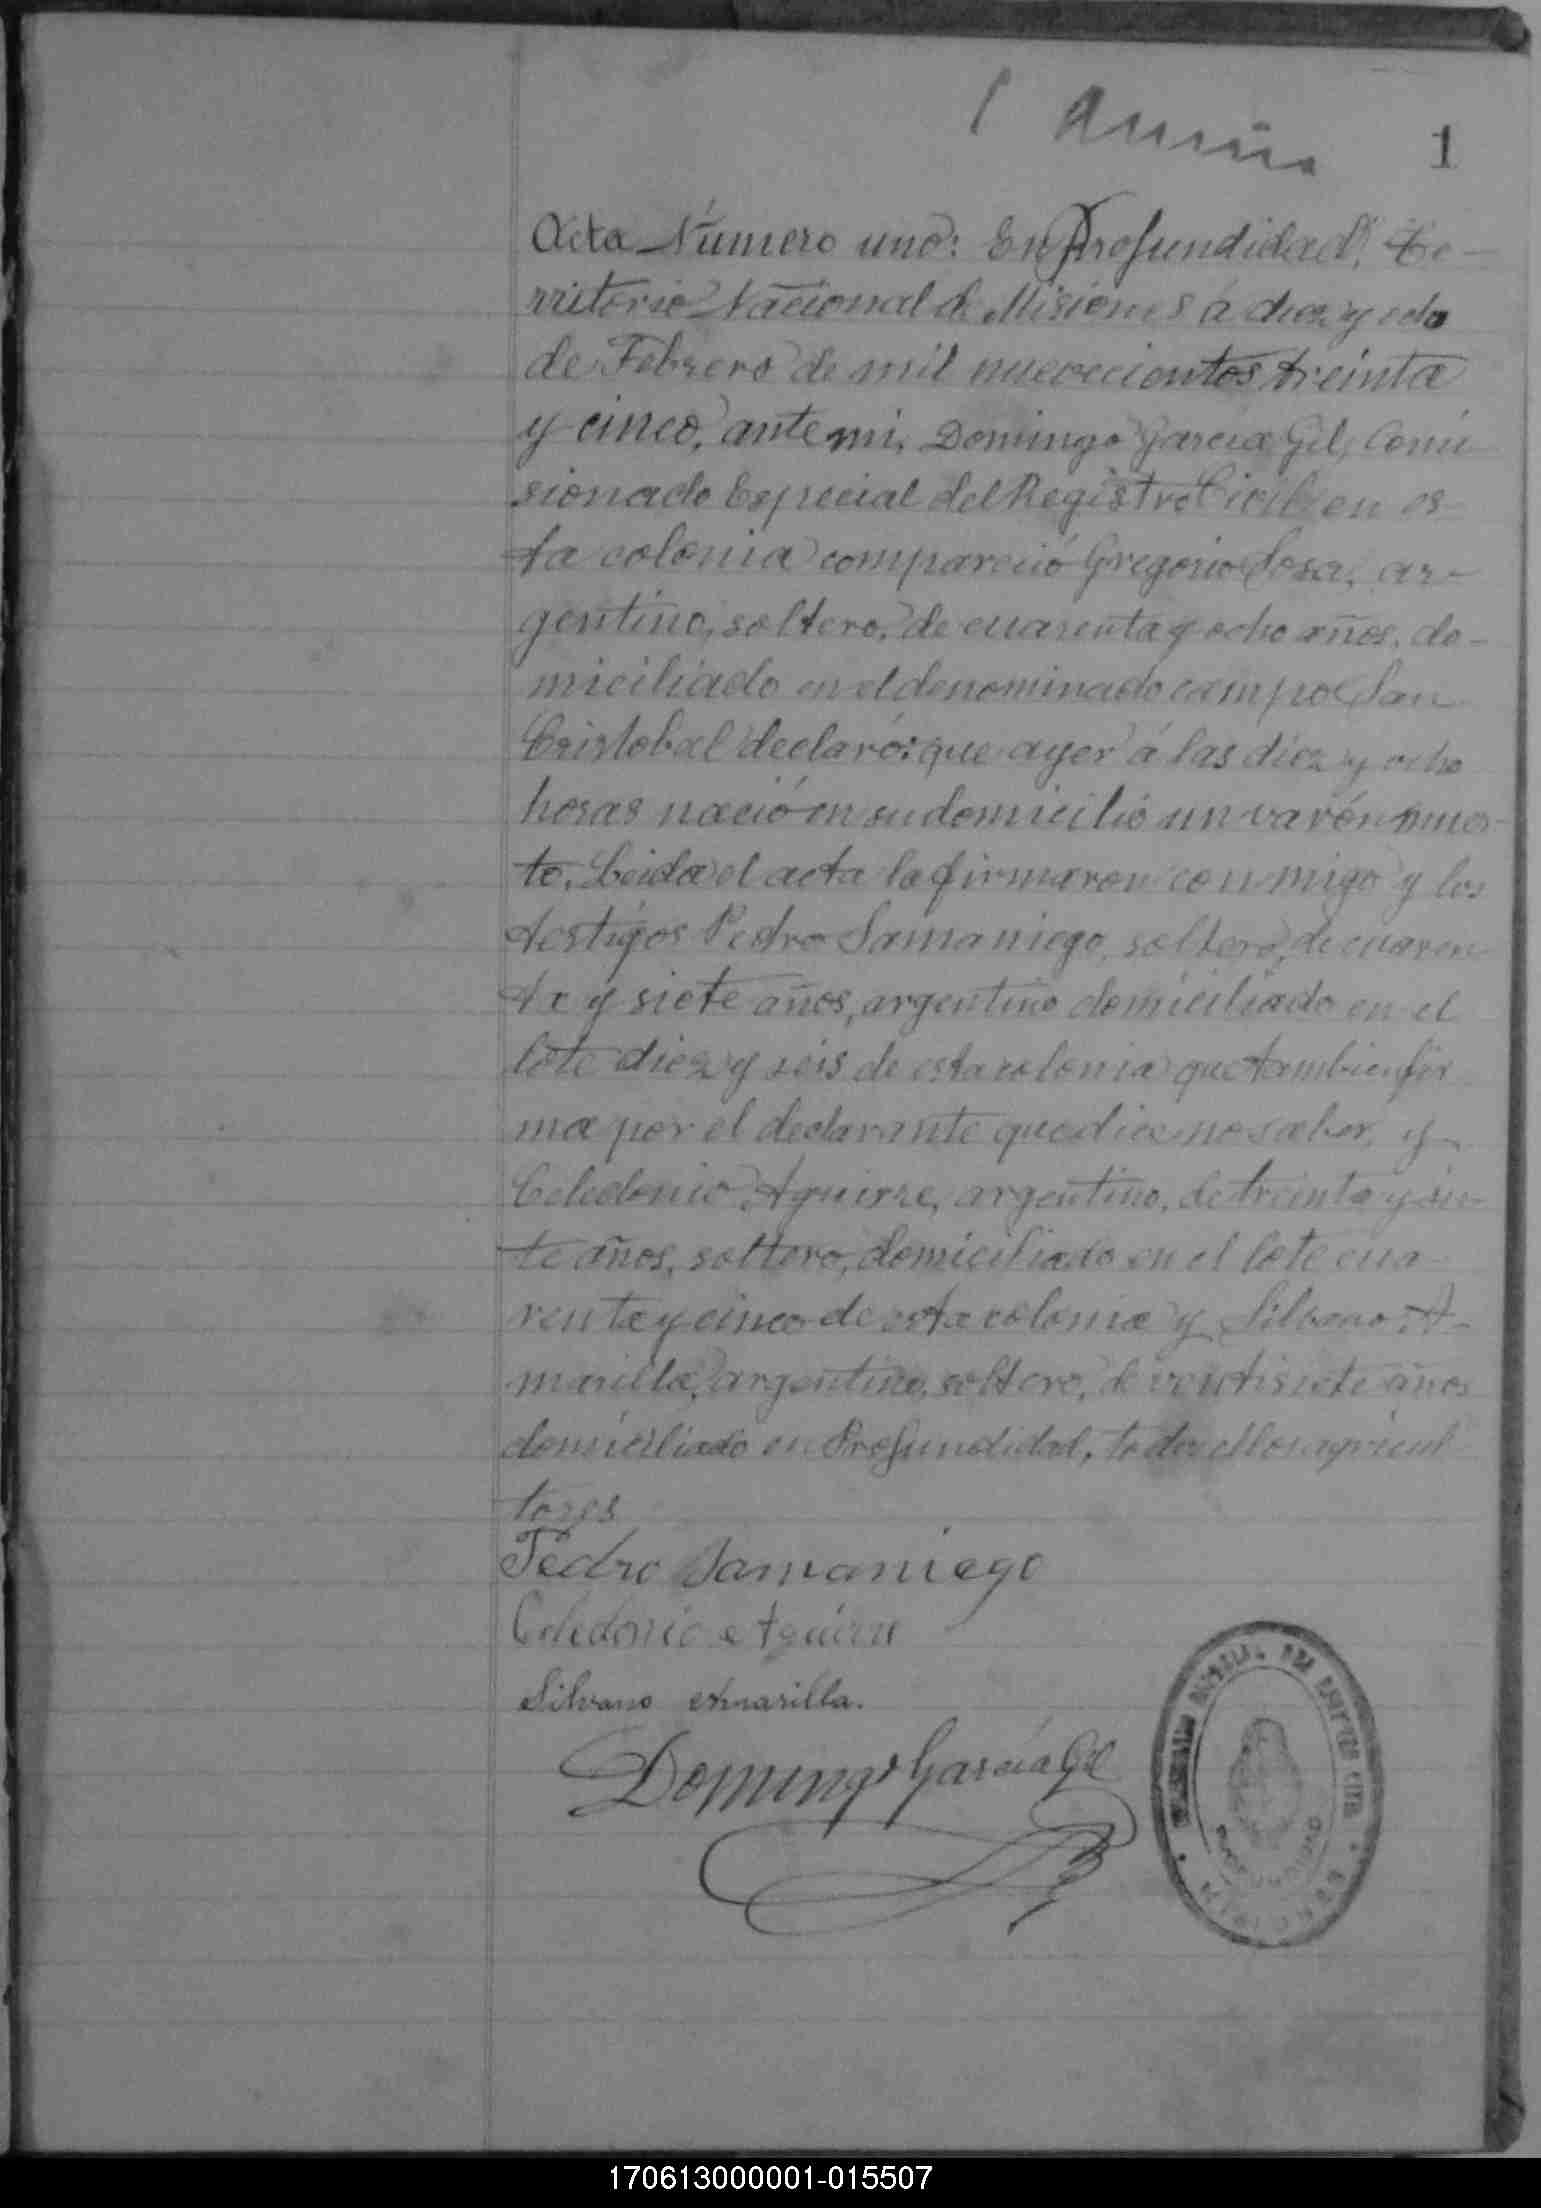 1
Acta Número uno: En Profundidad, Te-
rritorio Nacional de Misiones á diez y ocho
de Febrero de mil novecientos treinta
y cinco, ante mi, Domingo García Gil, Comi-
sionado Especial del Registro Civil en es-
ta colonia compareció Gregorio Sosa, ar-
gentino, soltero, de cuarenta y ocho años, do-
miciliado en el denominado campo San
Cristobal declaró: que ayer á las diez y ocho
horas nació en su domicilio un varón muer-
to. Leida el acta la firmaron conmigo y los
testigos Pedro Samaniego, soltero, de cuaren-
ta y siete años, argentino domiciliado en el
lote diez y seis de esta colonia que tambien fir
ma por el declarante que dice no saber, y
Celedonio Aguirre, argentino, de treinta y sie-
te años, soltero, domiciliado en el lote cua-
renta y cinco de esta colonia y Silvano A-
marilla, argentino, soltero, de ventisiete años
domiciliado en Profundidad, todos ellos agricul
tores
Pedro Samaniego
Celedonio Aguirre
Silvano Amarilla.
Domingo García Gil
PROFUNDIDAD
170613000001-015507